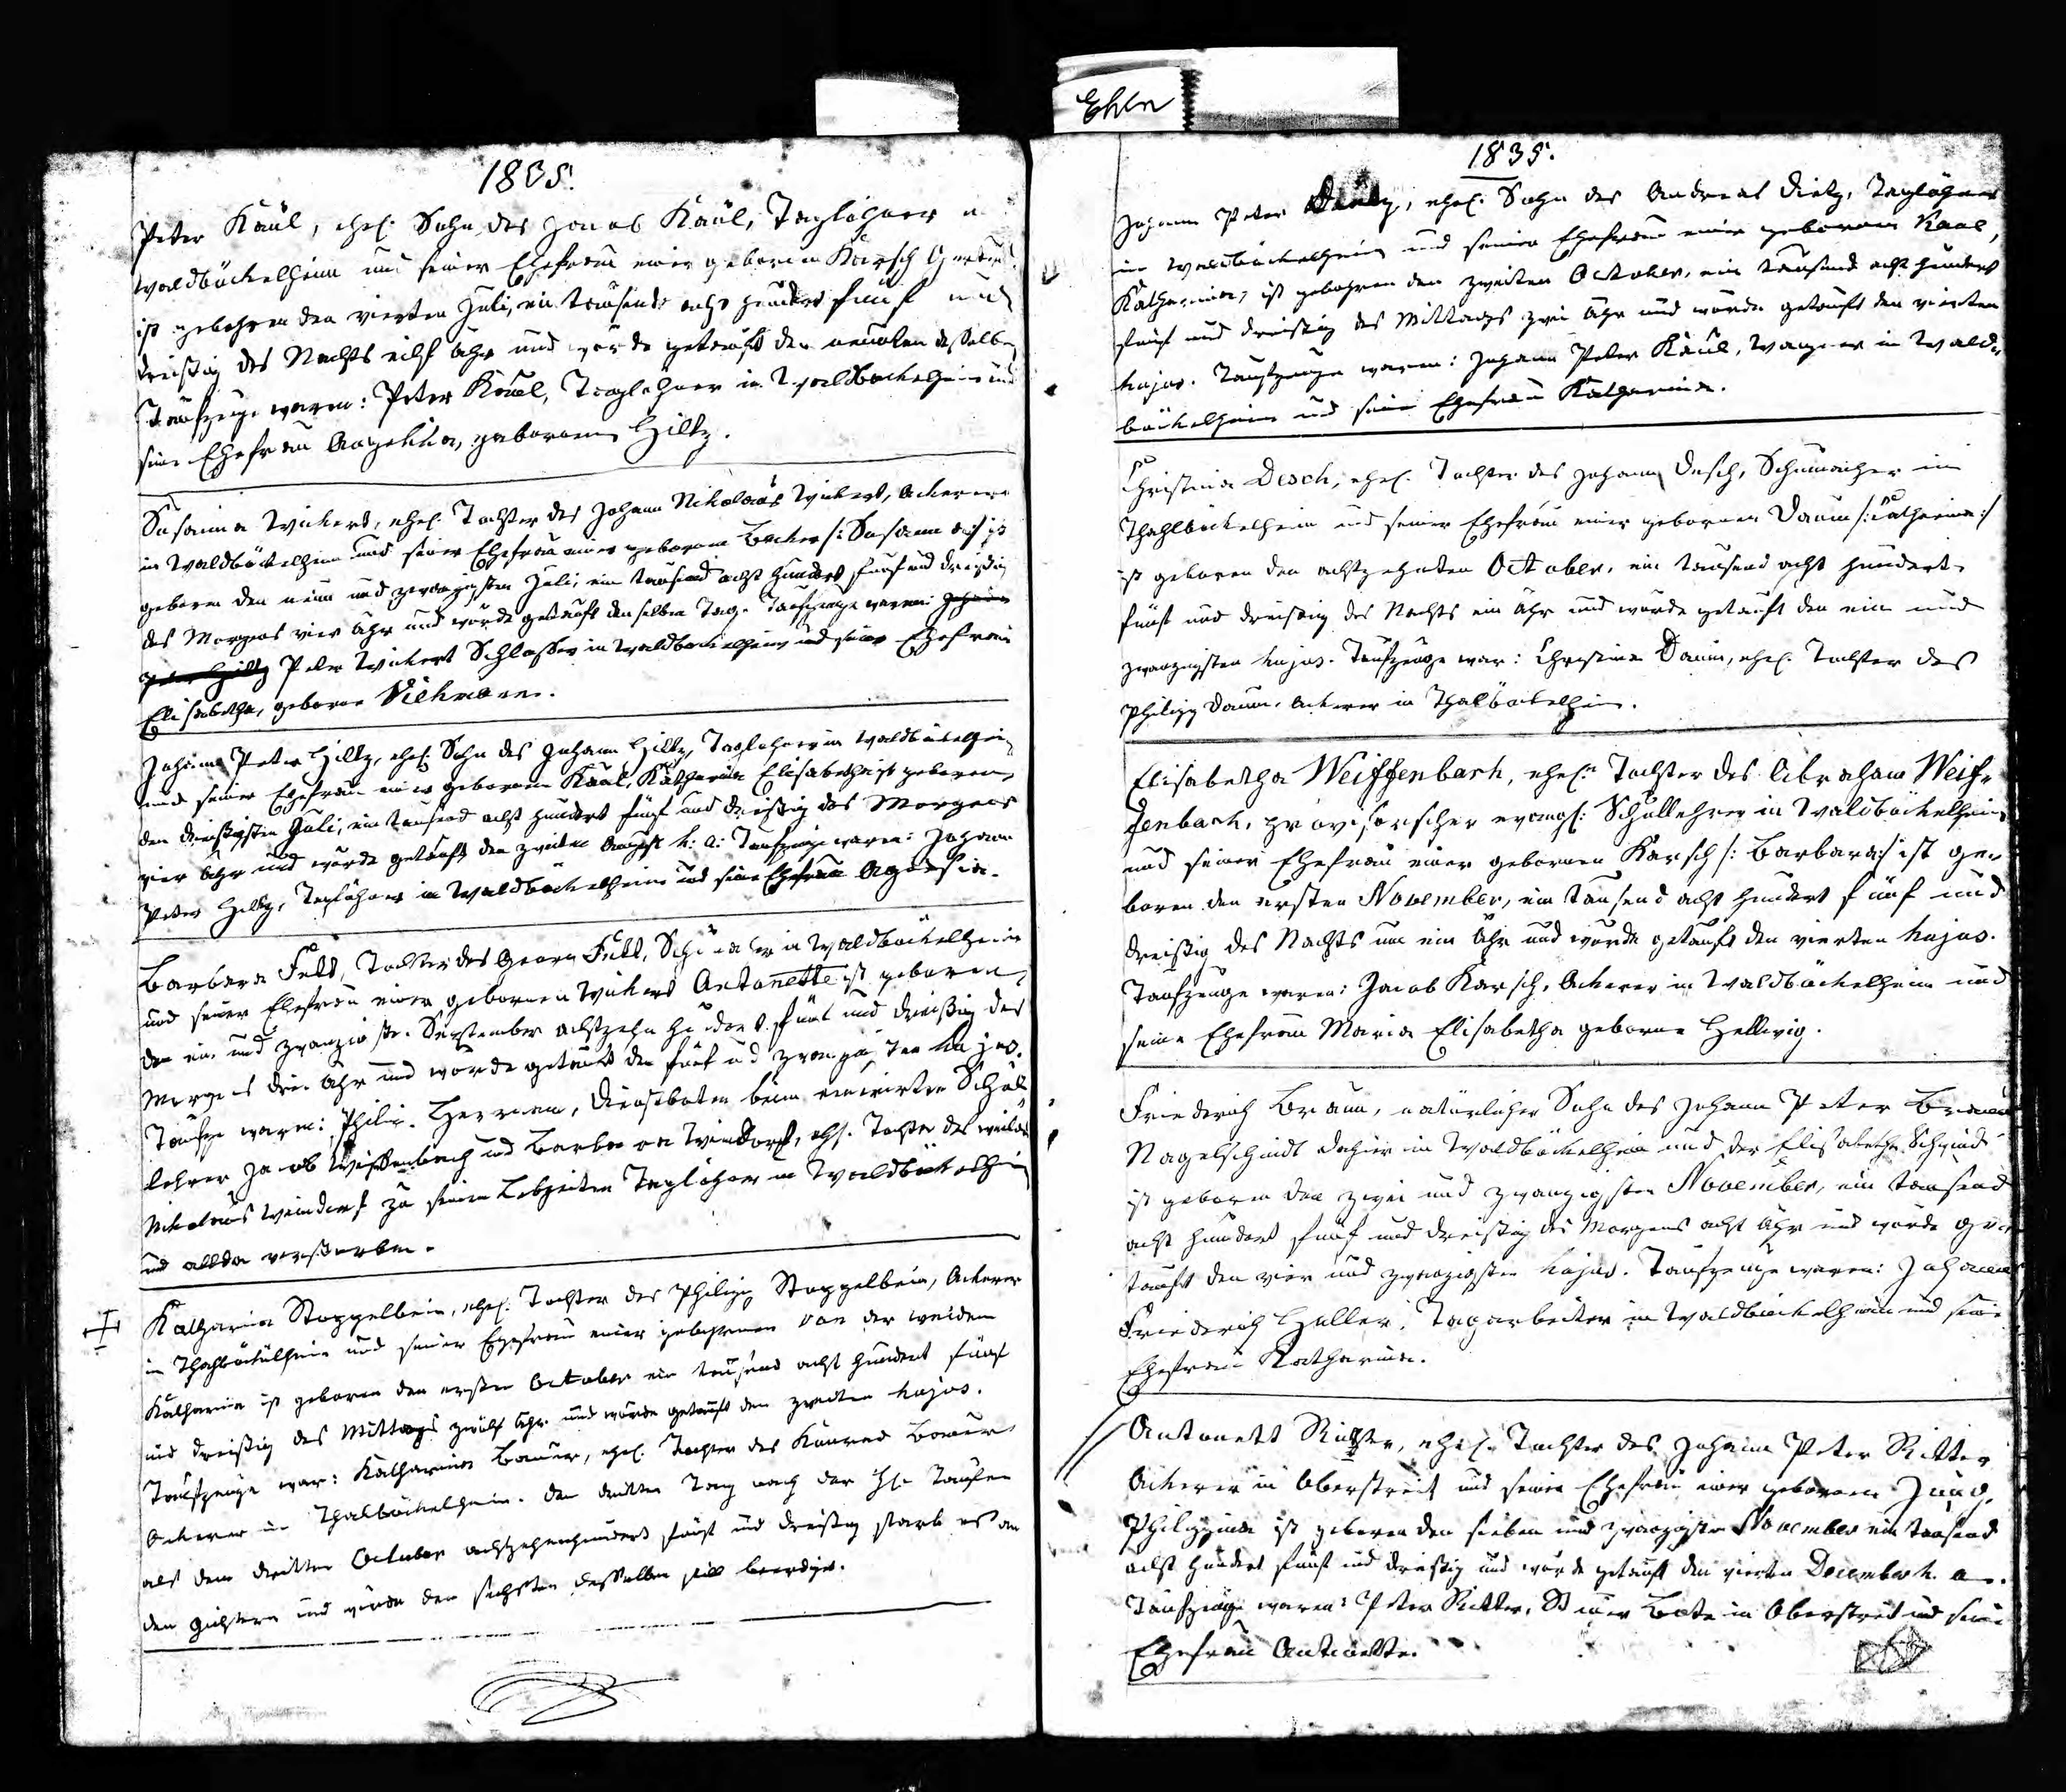 Ehler
1835.
Peter Kaul, ehel. Sohn des Jonas Kaul, Taglöhner in
Waldböckelheim und seiner Ehefrau einer gebornen Karsch Gertrud
ist gebohren den vierten Juli, ein tausend acht hundert fünf und
dreißig des Nachts eilf Uhr und wurde getauft den neunten desselben
Taufzeuge waren: Peter Kaul, Taglöhner in Waldböckelheim und
seine Ehefrau Angelika, gebornen Hiltz.
Susanna Wickert, ehel. Tochter des Johann Nikolaus Wickert, Ackerer
in Waldböckelheim und seiner Ehefrau einer gebornen Becker /: Susanna :/ ist
geboren den neun und zwanzigsten Juli, ein tausend acht hundert fünf und dreißig
des Morgens vier Uhr und wurde getauft denselben Tag. Taufzeuge waren: Johann
Peter Hiltz Peter Wickert Schlosser in Waldböckelheim und seine Ehefrau
Elisabetha, geborne Viehmann.
Johann Peter Hiltz, ehel. Sohn des Johann Hiltz, Taglöhner in Waldböckelheim
und seiner Ehefrau einer gebornen Kaul, Katharina Elisabetha ist geboren
den dreißigsten Juli, ein tausend acht hundert fünf und dreißig des Morgens
vier Uhr und wurde getauft den zweiten August h. a. Taufzeuge waren: Johann
Peter Hiltz, Taglöhner in Waldböckelheim und seine Ehefrau
Barbara Fett, Tochter des Georg Fett, in Waldböckelheim
und seiner Ehefrau einer gebornen Wickert Antonette ist geboren
den ein und zwanzigsten September achtzehn hundert fünf und dreißig des
Morgens drei Uhr und wurde getauft den fünf und zwanzigsten hujus.
Taufzeuge waren: Philip. Herrmann, Dienstboten beim emerirten Schul
lehrer Jacob Weiffenbach und Barbara Weindorf, ehl. Tochter des weiland
Nikolaus Weindorf zu seinen Lebzeiten Taglöhner in Waldböckelheim
und allda verstorben.
Katharina Stoppelbein, ehel. Tochter des Philipp Stoppelbein, Ackerer
in Thalböckelheim und seiner Ehefrau einer gebohrenen von der weidem
Katharina ist geboren den ersten October ein tausend acht hundert fünf
und dreißig des Mittags zwölf Uhr und wurde getauft den zweiten hujus.
Taufzeuge war: Katharina Bauer, ehel. Tochter des Konrad Bauer
Ackerer in Thalböckelheim. Den dritten Tag nach der Hl. Taufe
als den dritten October achtzehenhundert fünf und dreißig starb es an
den Gichtern und wurde den sechsten desselben still beerdiget.
1835.
Johann Peter Dietz, ehel. Sohn des Andreas Dietz, Taglöhner
in Waldböckelheim und seiner Ehefrau einer gebornen Kaul,
Katharina, ist gebohren den zweiten October, ein tausend acht hundert
fünf und dreißig des Mittags zwei Uhr und wurde getauft den vierten
hujus. Taufzeuge waren: Johann Peter Kaul, Wagner in Wald=
böckelheim und seine Ehefrau Katharina.
Christina Desch, ehel. Tochter des Johann Desch, Schumacher in
Thahlböckelheim und seiner Ehefrau einer gebornen Daum /: Catharina :/
ist geboren den achtzehnten October, ein tausend acht hundert
fünf und dreißig des Nachts ein Uhr und wurde getauft den ein und
zwanzigsten hujus. Taufzeuge war: Christina Daum, ehel. Tochter des
Philipp Daum, Ackerer in Thalböckelheim.
Elisabetha Weiffenbach, ehel. Tochter des Abraham Weif=
fenbach, provisorischer evangl: Schullehrer in Waldböckelheim
und seiner Ehefrau einer gebornen Karsch /: Barbara :/ ist ge=
boren den ersten November, ein tausend acht hundert fünf und
dreißig des Nachts um ein Uhr und wurde getauft den vierten hujus.
Taufzeuge waren: Jacob Karsch, Ackerer in Waldböckelheim und
seine Ehefrau Maria Elisabetha geborne Hellwig.
Friederich Braun, natürlicher Sohn des Johann Peter Braun
Nagelschmidt dahier in Waldböckelheim und der Elisabetha Schmidt
ist geboren den zwei und zwanzigsten November, ein tausend
acht hundert fünf und dreißig des Morgens acht Uhr und wurde ge=
tauft den vier und zwanzigsten hujus. Taufzeuge waren: Johann
Friederich Heller, Tagarbeiter in Waldböckelheim und seine
Ehefrau Katharina.
Antonett Ritter, ehel. Tochter des Johann Peter Ritter
Ackerer in Oberstreit und seiner Ehefrau einer gebornen Jung,
Philippina ist geboren den sieben und zwanzigsten November ein tausend
acht hundert fünf und dreißig und wurde getauft den vierten December h. a.
Taufzeuge waren: Peter Ritter, Steuer Bote in Oberstreit und seine
Ehefrau Antonette.